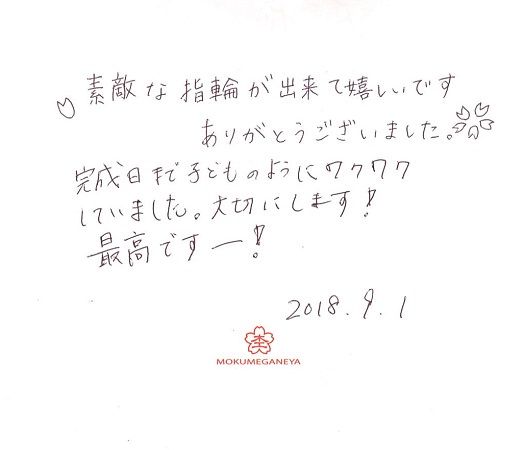 素敵な指輪が出来て嬉しいです
ありがとうございました。
完成日まで子どものようにワクワク
していました。大切にします!
最高ですー!
2018.9.1
MOKUMEGANEYA